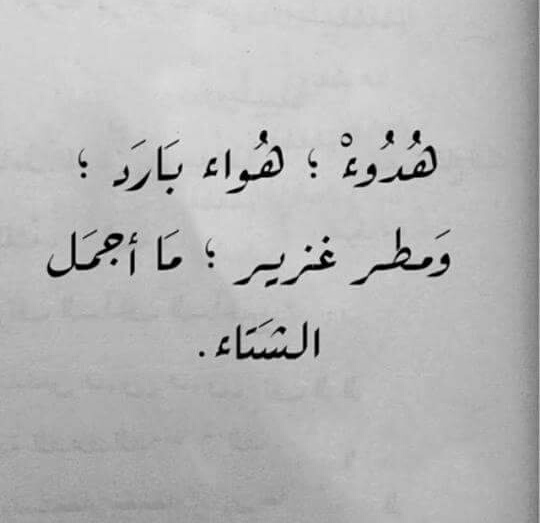 هُدُوءْ ؛ هُواء بَارَد ؛
وَمطر غزير ؛ مَا أجمَل
الشَتاء.